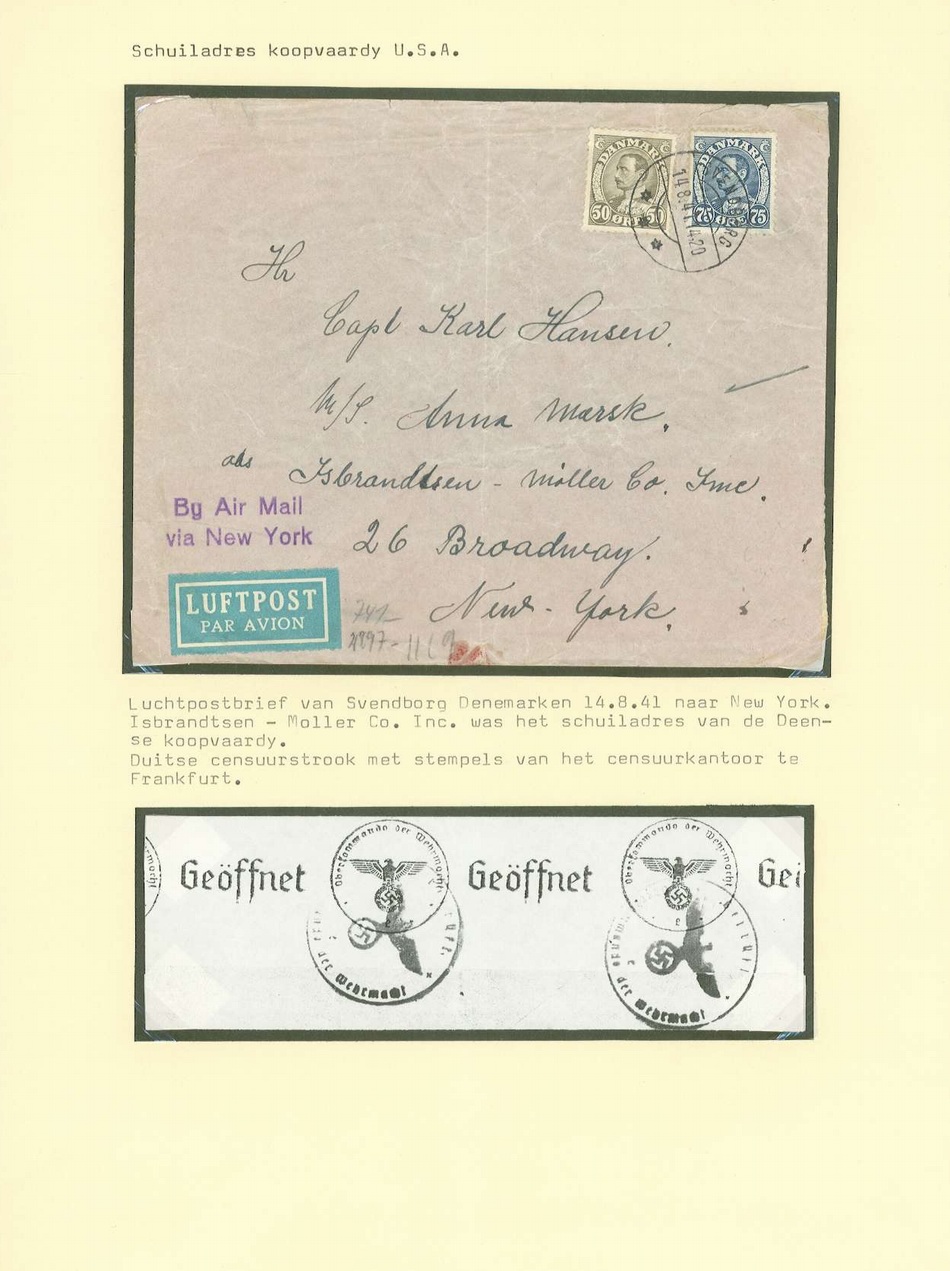 Schuiladres koopvaardy U.S.A.
DANMARK
50 ØRE 50
DANMARK
75 ØRE 75
SVENDBORG
14.8.41 14.20
Hr
Capt Karl Hansen.
M/S. Anna Mærsk.
Isbrandtsen - Möller Co. Inc.
By Air Mail
via New York
26 Broadway.
New-York.
LUFTPOST
PAR AVION
741-
Luchtpostbrief van Svendborg Denemarken 14.8.41 naar New York.
Isbrandtsen - Moller Co. Inc. was het schuiladres van de Deen-
se koopvaardy.
Duitse censuurstrook met stempels van het censuurkantoor te
Frankfurt.
Geöffnet
Oberkommando der Wehrmacht
e
Geöffnet
Oberkommando der Wehrmacht
e
Geö
der Wehrmacht
der Wehrmacht